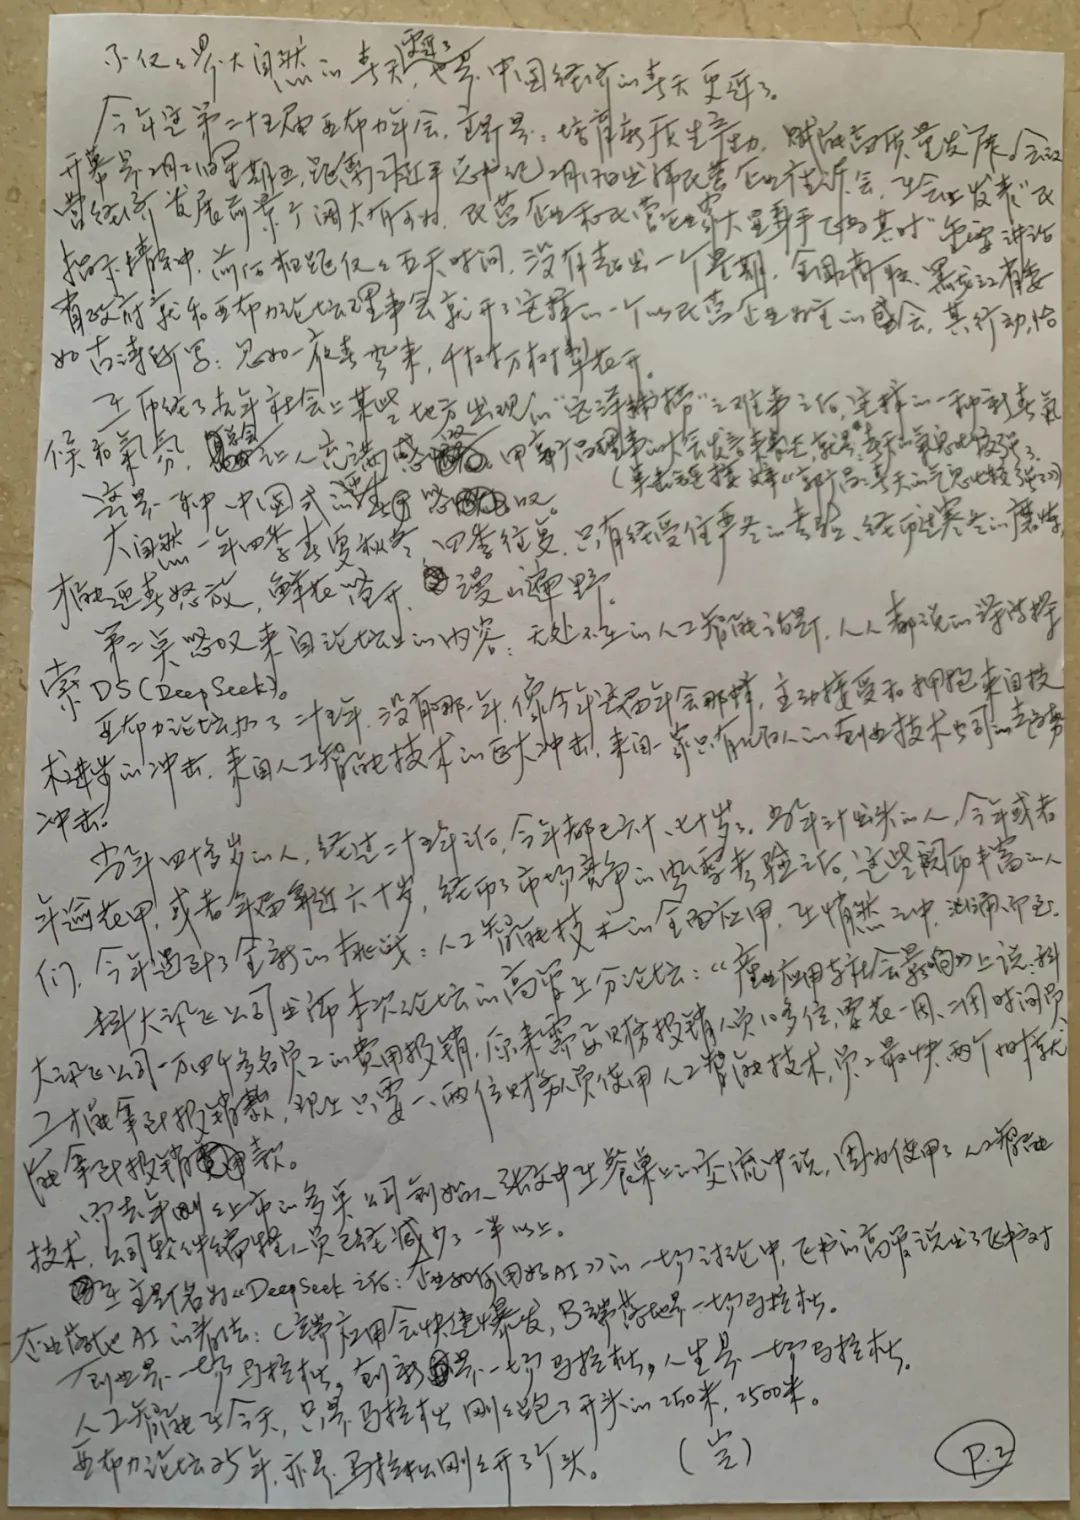 不仅仅是大自然的春天更近了，也是中国经济的春天更近了。
今年是第二十五届亚布力年会，主题是：培育新质生产力，赋能高质量发展。会议
开幕是2月21日星期五，距离习近平总书记2月17日出席民营企业座谈会，在会上发表“民
营经济发展前景广阔大有可为，民营企业和民营企业家大显身手正当其时”重要讲话
指示精神，前后相距仅仅五天时间，没有超出一个星期，全国工商联、黑龙江省委
省政府就和亚布力论坛理事会就开了这样的一个以民营企业为主的盛会，其行动，恰
如古诗所写：忽如一夜春风来，千树万树梨花开。
在历经了去年社会上某些地方出现的“远洋捕捞”之难事之后，这样的一种新春气
候和氛氛，总会让人充满感
这是一种中国式的
大自然一年四季春夏秋冬，四季往复，只有经受住严冬的考验，经历过寒冬的磨炼，
才能迎春怒放，鲜花盛开，漫山遍野。
第二点感叹来自论坛上的内容：无处不在的人工智能话题，人人都说的深度探
索DS（DeepSeek）。
亚布力论坛办了二十五年，没有哪一年，像今年这届年会那样，主动接受和拥抱来自技
术进步的冲击，来自人工智能技术的巨大冲击，来自一家只有 人的创业技术公司的走势
冲击。
当年四十多岁的人，经过二十五年之后，今年都已六十、七十岁了。当年三十出头的人，今年或者
年逾花甲，或者年届靠近六十岁，经历了市场竞争的风雪考验之后，这些阅历丰富的人
们，今年遇到了全新的挑战：人工智能技术的全面应用，在悄然之中，汹涌而至。
科大讯飞公司出席本次论坛的高管在分论坛：“产业应用与社会影响》上说：科
大讯飞公司一万四千多名员工的费用报销，原来需要财务报销人员10多位，要花一周、二周时间员
工才能拿到报销款，现在只要一、两位财务人员使用人工智能技术，员工最快两个小时就
能拿到报销款。
而去年刚刚上市的多点公司创始人张文中在餐桌上的交流中说，因为使用了人工智能
技术，公司软件编程人员已经减少了一半以上。
在主题名为《DeepSeek之后：企业如何用好AI》的一场讨论中，飞书的高管说出了飞书对
企业落地AI的看法：C端应用会快速爆发，B端落地是一场马拉松。
创业是一场马拉松，创新是一场马拉松，人生是一场马拉松。
人工智能在今天，只是马拉松刚刚跑了开头的250米，2500米。
亚布力论坛25年，亦是马拉松刚刚开了个头。（完）
P.2